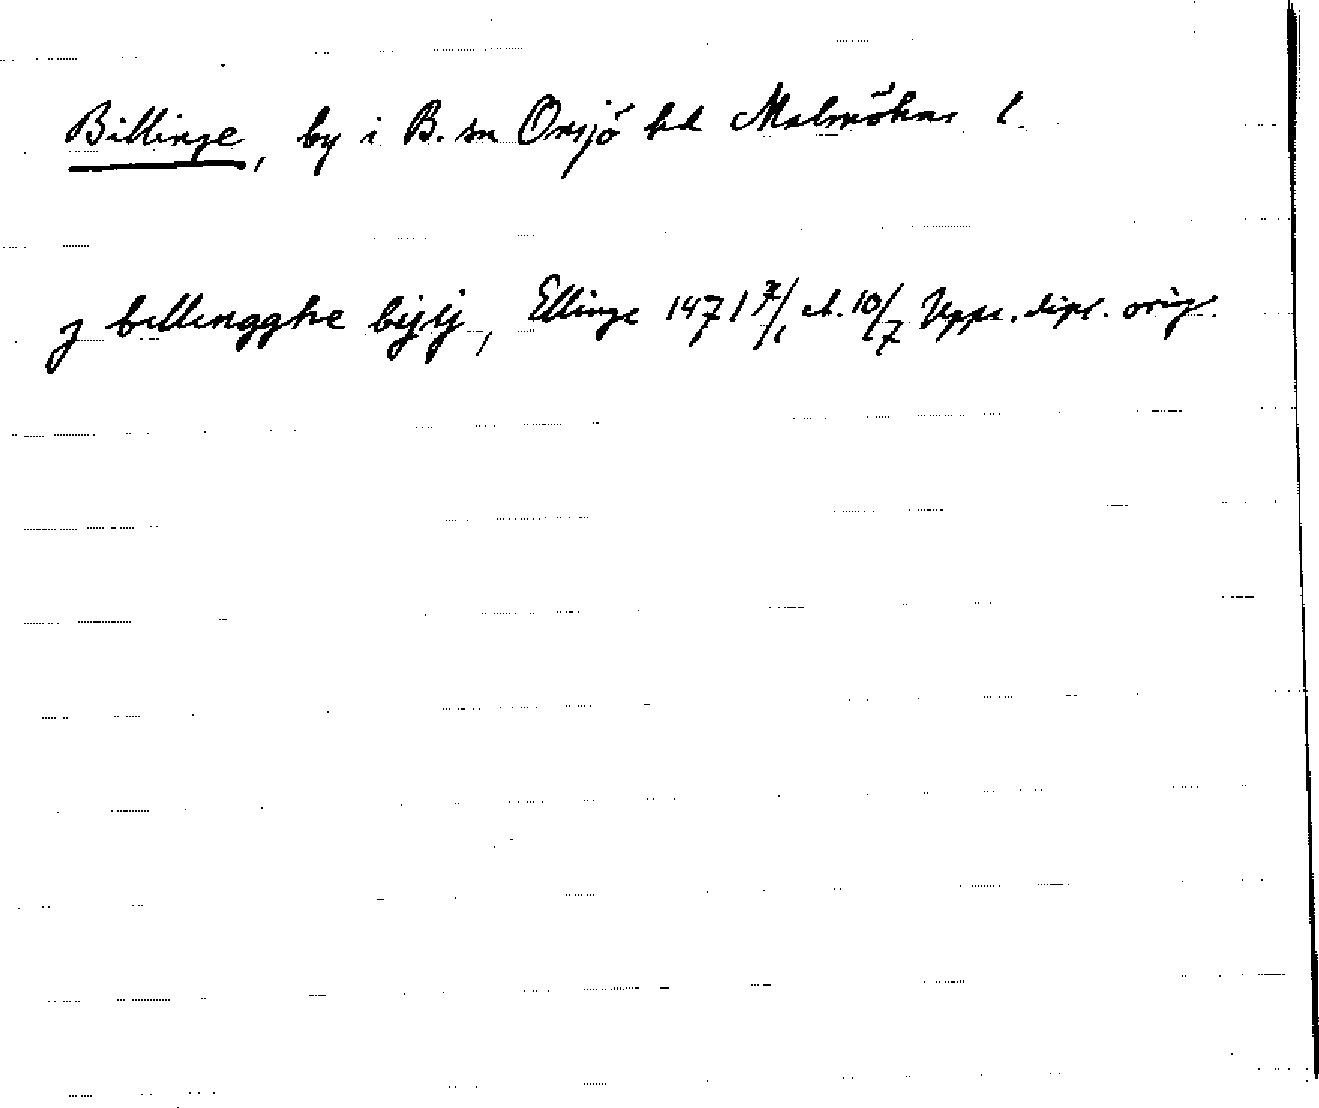 Billinge, by i B. sn Onsjö hd Malmöhus l.
j billingghe bijij, Ellinge 1471 10/7 Upps. dipl. orig.